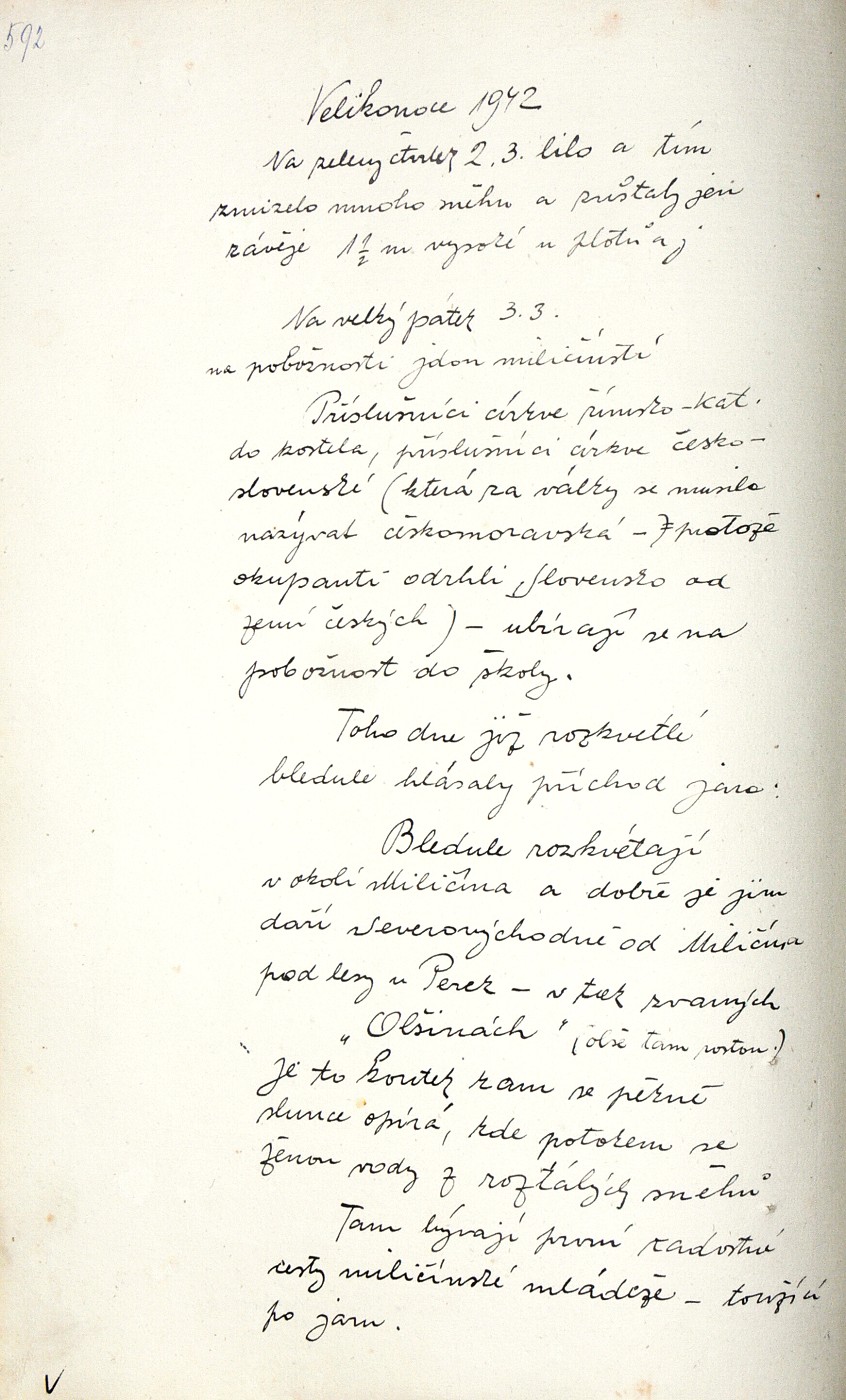 592
Velikonoce 1942
Na zelený čtvrtek 2.3. lilo a tím
zmizelo mnoho sněhu a zůstaly jen
závěje 1 1/2 m vysoké u plotů a j
Na velký pátek 3.3.
na pobožnosti jdou miličínští
Příslušníci církve římsko-kat.
do kostela, příslušníci církve česko-
slovenské (která za války se musila
nazývat českomoravská - protože
okupanti odrhli Slovensko od
zemí českých) - ubírají se na
pobožnost do školy.
Toho dne již rozkvetlé
bledule hlásaly příchod jara.
Bledule rozkvétají
v okolí Miličína a dobře je jim
daří severovýchodně od Miličína
pod lesy u Perek - v tak zvaných
"Olšinách" (olše tam rostou.)
Je to koutek kam se pěkně
slunce opírá, kde potokem se
ženou vody z roztálých sněhů
Tam bývají první radostné
cesty miličínské mládeže - toužící
po jaru.
V